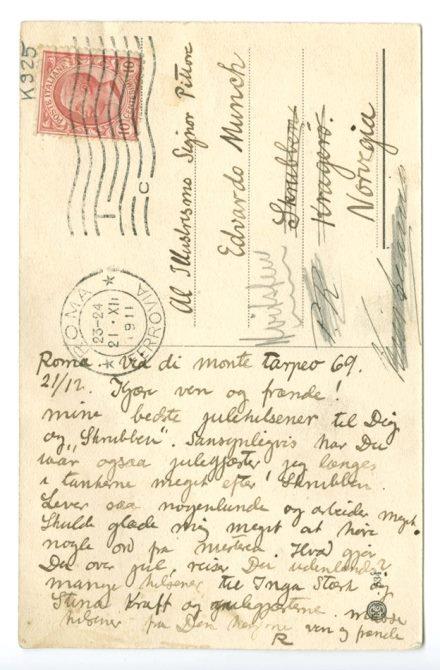 K925
POSTE ITALIANE
CENTESIMI 10
ROMA
23-24
21·XII
1911
FERROVIA
Al Illustresmo Signor Pittore
Edvardo Munch
Skrubben
Kragerö.
Norvegia
Hvitsten
Roma via di monte tarpeo 69.
21/12. Kjære ven og frænde!
mine bedste julehilsener til Dig
og „Skrubben". Sansynligvis har Du
iaar ogsaa julegjæster jeg længes
i tankerne meget efter Skrubben.
Lever saa nogenlunde og arbeider meget.
Skulde glæde mig meget at høre
nogle ord fra Hvad gjør
Du over jul, reiser Du udenlands?
mange hilsener til Inga Stærk og
Stina Kraft og julegjæsterne.
hilsener fra Din ven og frænde
R